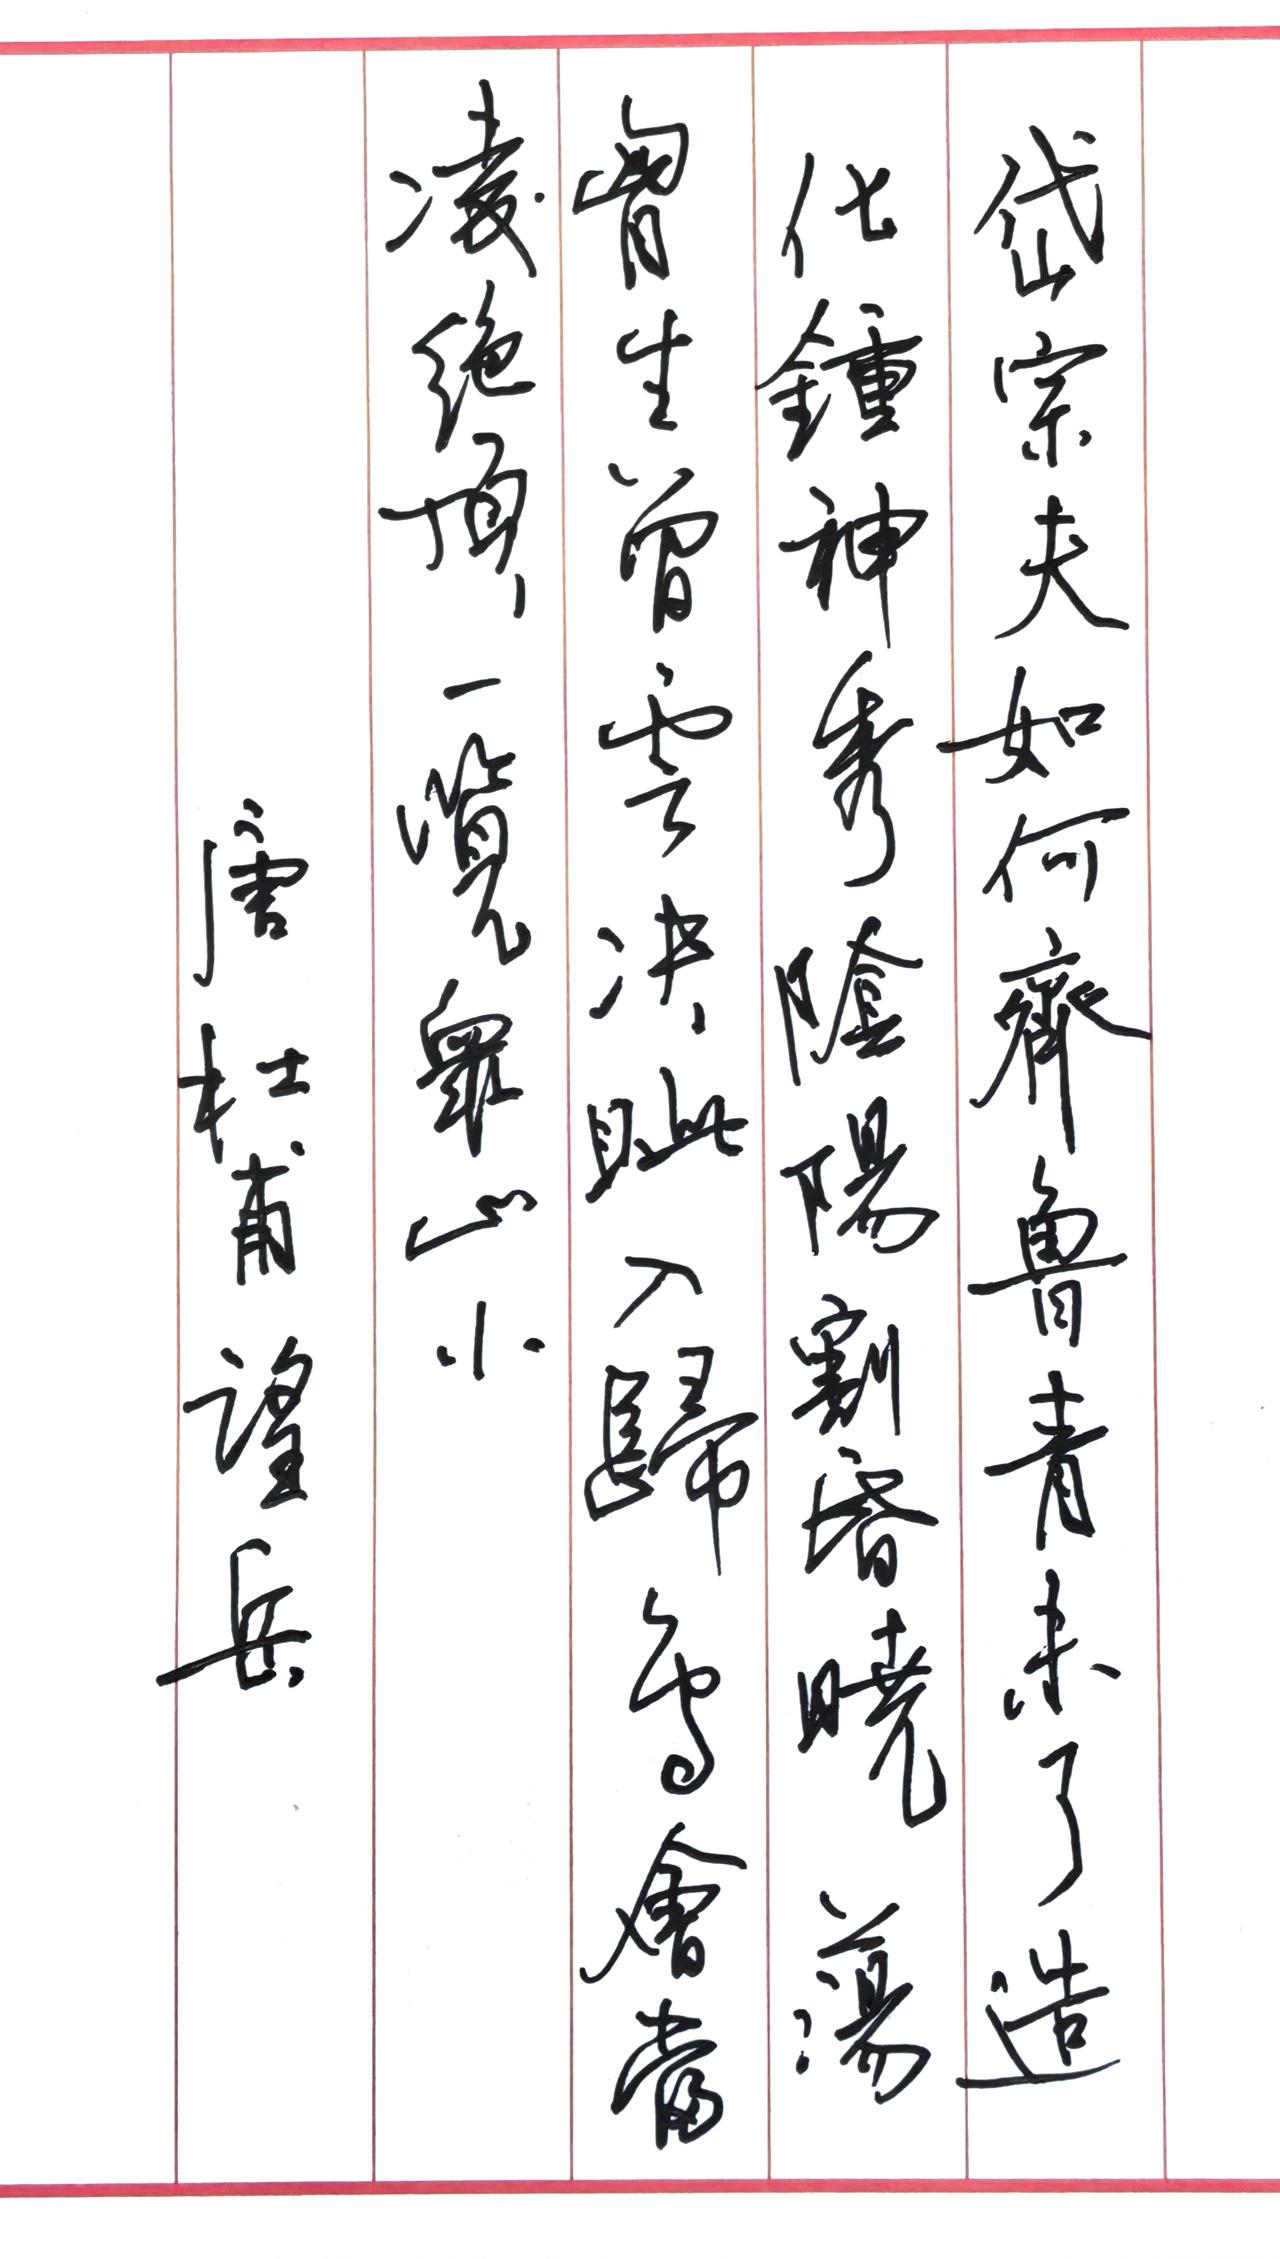 岱宗夫如何齊魯青未了造
化鍾神秀陰陽割昏曉蕩
胷生曾雲決眦入歸鳥會當
凌絕頂一覽眾山小
唐杜甫望岳